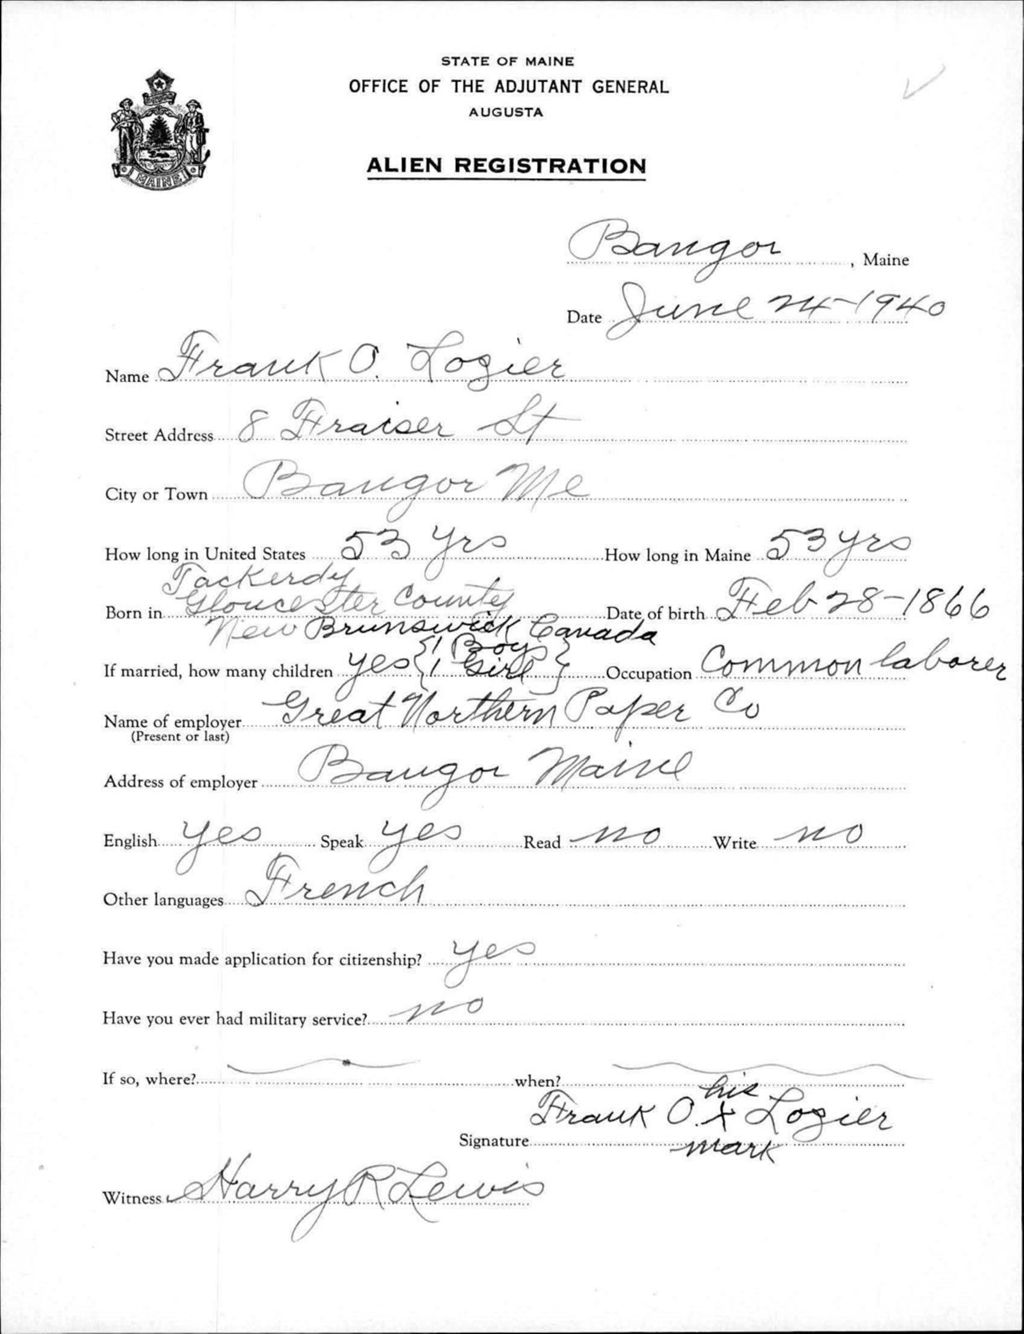 STATE OF MAINE
OFFICE OF THE ADJUTANT GENERAL
AUGUSTA
ALIEN REGISTRATION
MAINE
Bangor, Maine
Date June 24-1940
Name Frank O. Lozier
Street Address 8 Fraiser St
City or Town Bangor Me
How long in United States 53 yrs How long in Maine 53 yrs
Tackerdy
Born in Gloucester County Date of birth Feb 28-1866
New Brunswick Canada
If married, how many children yes {1 Boy 1 Girl} Occupation Common laborer
Name of employer Great Northern Paper Co
(Present or last)
Address of employer Bangor Maine
English yes Speak yes Read no Write no
Other languages French
Have you made application for citizenship? yes
Have you ever had military service? no
If so, where? when?
his
Signature Frank O. X Lozier
mark
Witness Harry R Lewis